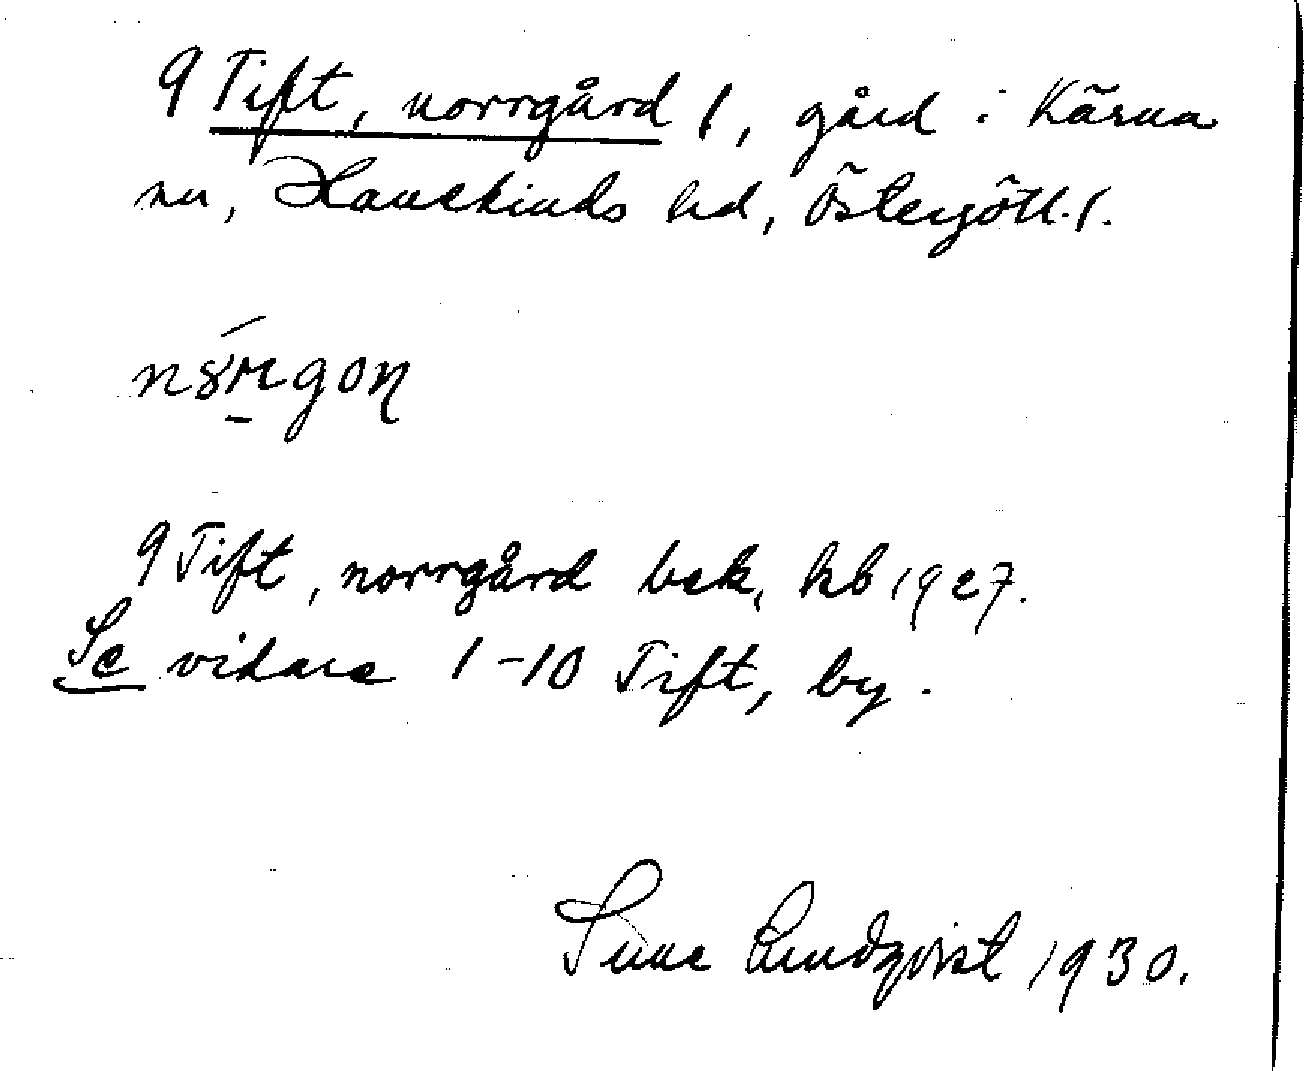 9 Tift, norrgård 1, gård i Kärna
sn, Hanekinds hd, Östergötl. l.
9 Tift, norrgård bek, hb 1927.
Se vidare 1-10 Tift, by.
Sune Lindqvist 1930.